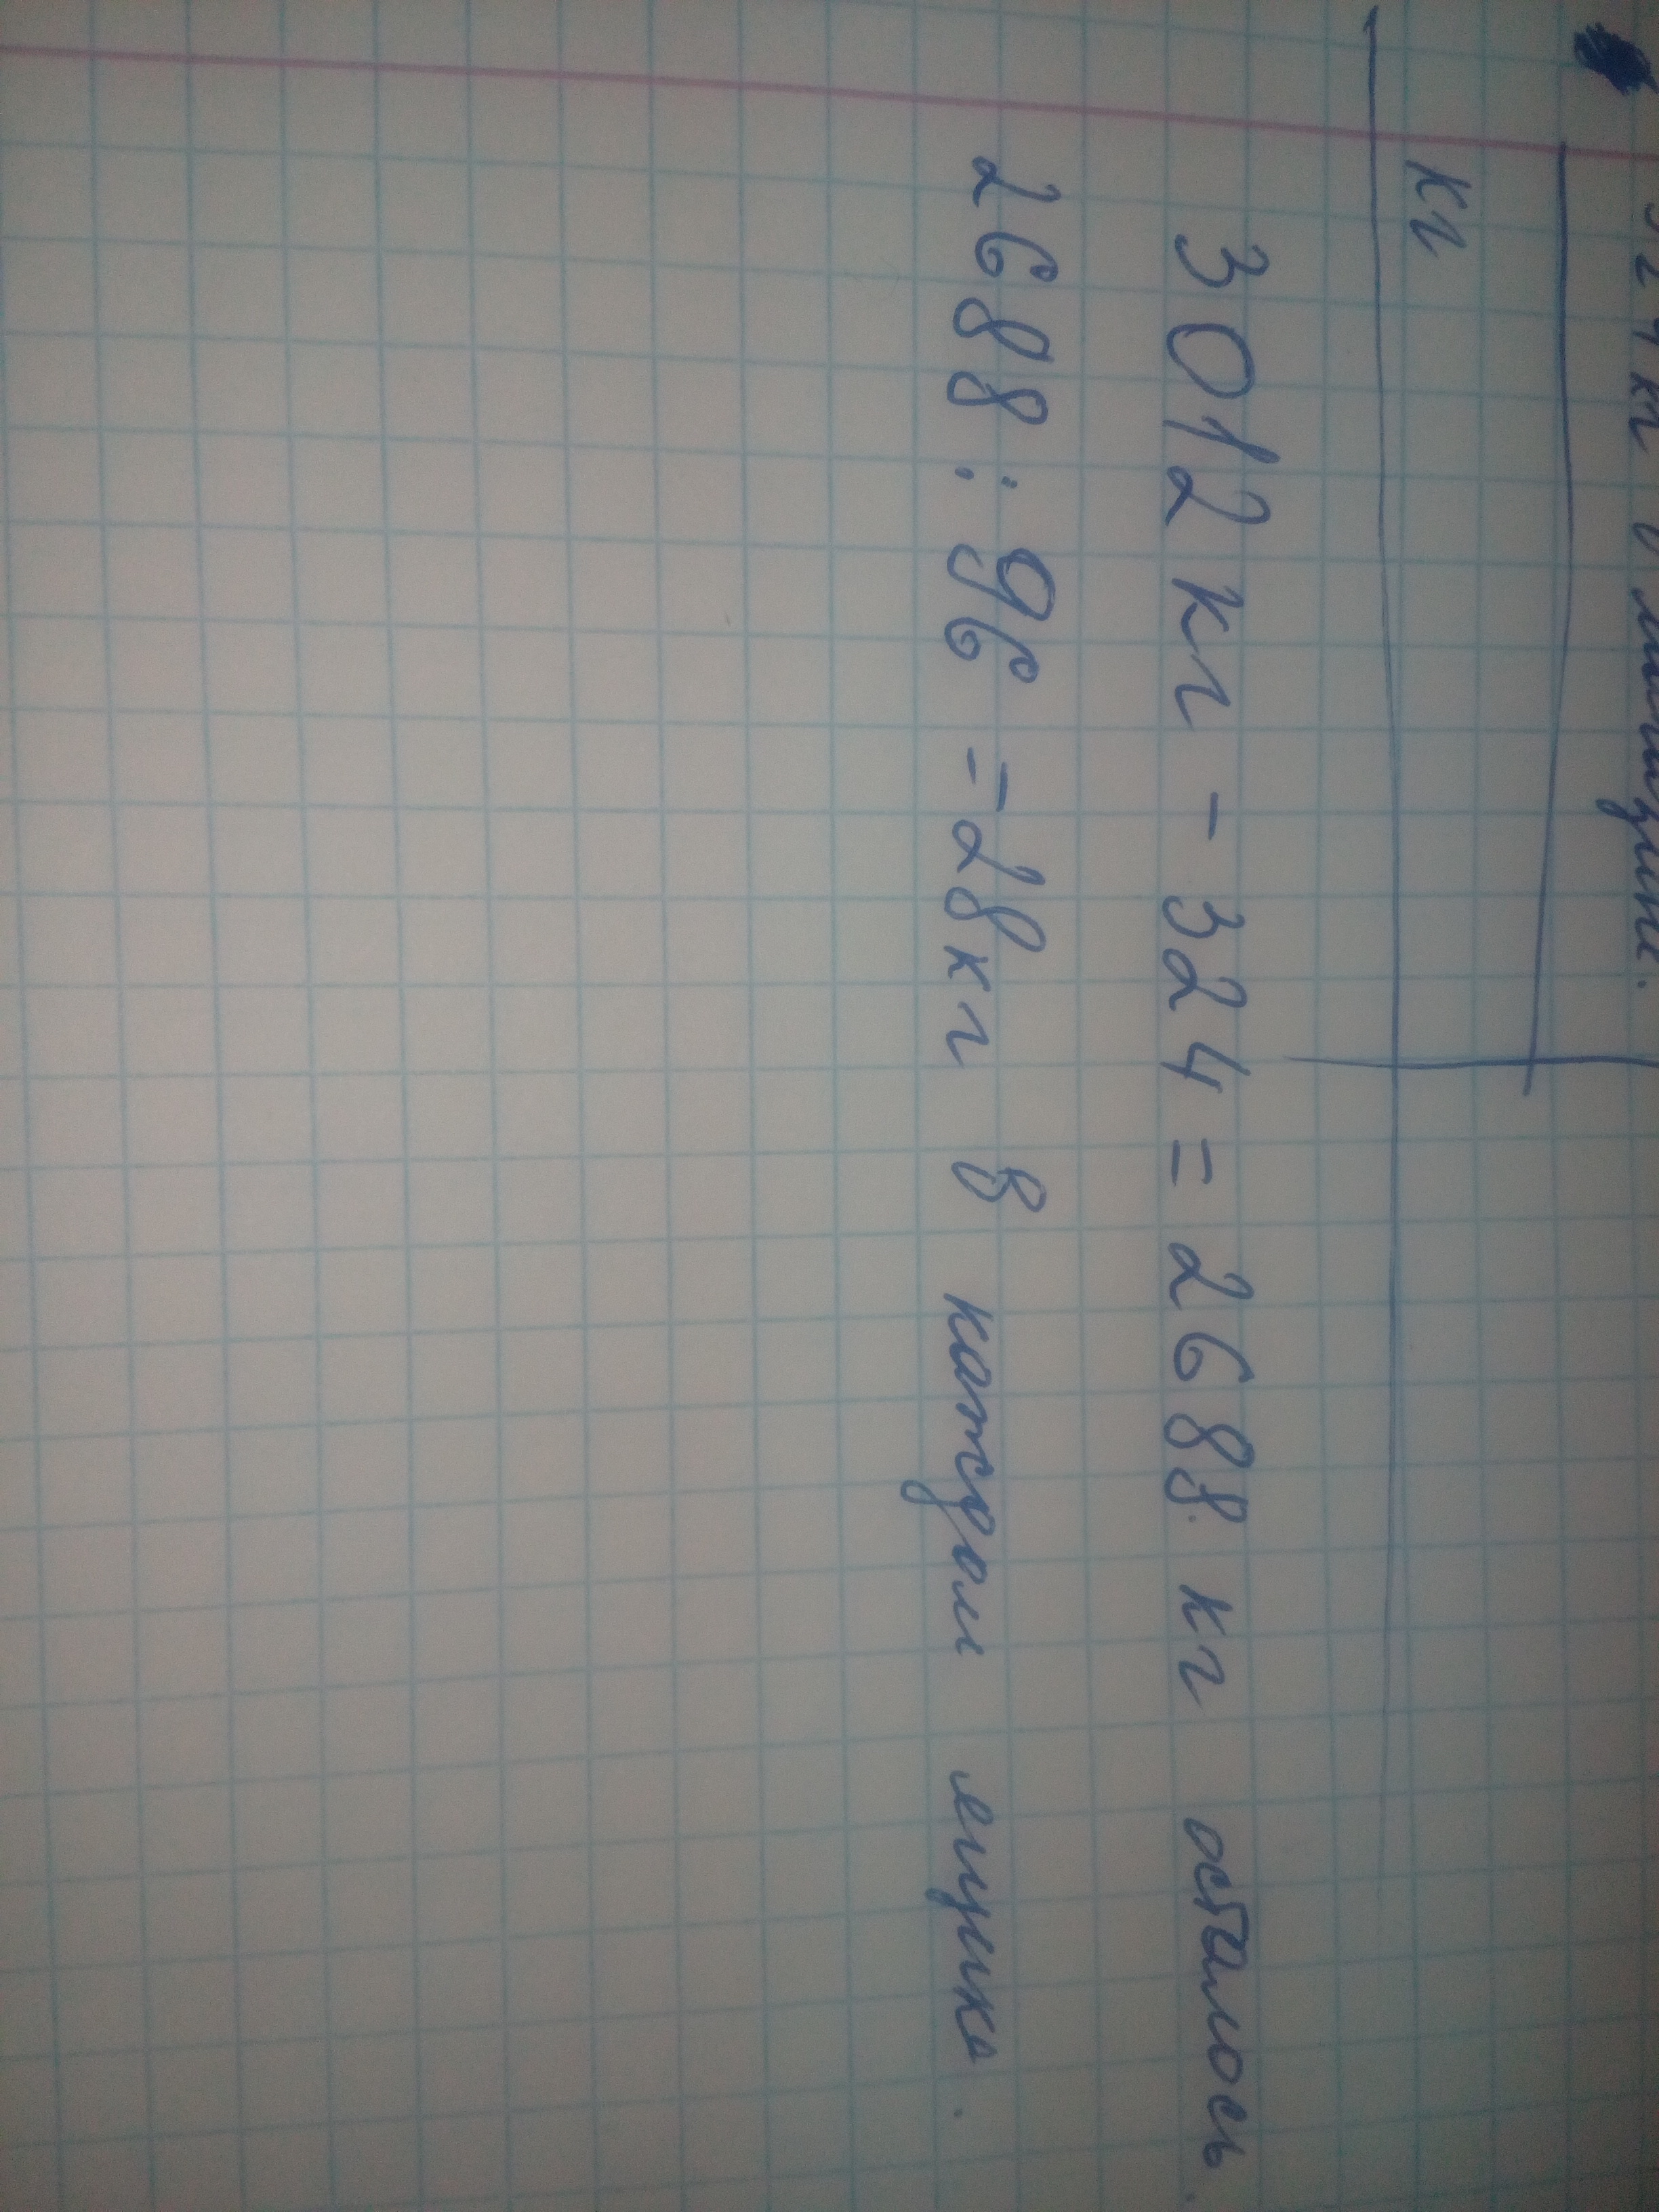 324 кг в магазине.
кг
3012 кг - 324 = 2688 кг осталось.
2688 : 96 = 28 кг в каждом